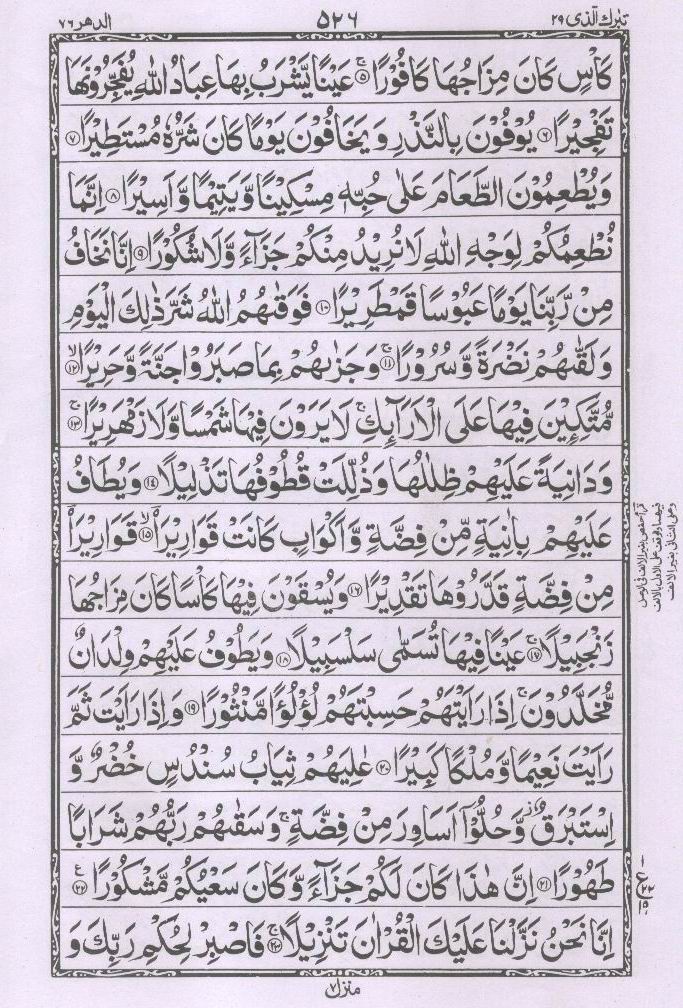 تبرك الذى ٢٩
٥٢٦
الدهر ٧٦
كَاْسٍ كَانَ مِزَاجُهَا كَافُوْرًا ۚ﴿٥﴾ عَيْنًا يَّشْرَبُ بِهَا عِبَادُ اللّٰهِ يُفَجِّرُوْنَهَا
تَفْجِيْرًا ﴿٦﴾ يُوْفُوْنَ بِالنَّذْرِ وَ يَخَافُوْنَ يَوْمًا كَانَ شَرُّهٗ مُسْتَطِيْرًا ﴿٧﴾
وَيُطْعِمُوْنَ الطَّعَامَ عَلٰى حُبِّهٖ مِسْكِيْنًا وَّ يَتِيْمًا وَّ اَسِيْرًا ﴿٨﴾ اِنَّمَا
نُطْعِمُكُمْ لِوَجْهِ اللّٰهِ لَا نُرِيْدُ مِنْكُمْ جَزَآءً وَّ لَا شُكُوْرًا ﴿٩﴾ اِنَّا نَخَافُ
مِنْ رَّبِّنَا يَوْمًا عَبُوْسًا قَمْطَرِيْرًا ﴿١٠﴾ فَوَقٰىهُمُ اللّٰهُ شَرَّ ذٰلِكَ الْيَوْمِ
وَ لَقّٰىهُمْ نَضْرَةً وَّ سُرُوْرًا ۚ﴿١١﴾ وَ جَزٰىهُمْ بِمَا صَبَرُوْا جَنَّةً وَّ حَرِيْرًا ۙ﴿١٢﴾
مُّتَّكِـِٕيْنَ فِيْهَا عَلَى الْاَرَآىِٕكِ ۚ لَا يَرَوْنَ فِيْهَا شَمْسًا وَّ لَا زَمْهَرِيْرًا ۚ﴿١٣﴾
وَ دَانِيَةً عَلَيْهِمْ ظِلٰلُهَا وَ ذُلِّلَتْ قُطُوْفُهَا تَذْلِيْلًا ﴿١٤﴾ وَ يُطَافُ
عَلَيْهِمْ بِاٰنِيَةٍ مِّنْ فِضَّةٍ وَّ اَكْوَابٍ كَانَتْ قَوَارِيْرَا۠ ۙ﴿١٥﴾ قَوَارِيْرَا۠
مِنْ فِضَّةٍ قَدَّرُوْهَا تَقْدِيْرًا ﴿١٦﴾ وَ يُسْقَوْنَ فِيْهَا كَاْسًا كَانَ مِزَاجُهَا
زَنْجَبِيْلًا ۚ﴿١٧﴾ عَيْنًا فِيْهَا تُسَمّٰى سَلْسَبِيْلًا ﴿١٨﴾ وَ يَطُوْفُ عَلَيْهِمْ وِلْدَانٌ
مُّخَلَّدُوْنَ ۚ اِذَا رَاَيْتَهُمْ حَسِبْتَهُمْ لُؤْلُؤًا مَّنْثُوْرًا ﴿١٩﴾ وَ اِذَا رَاَيْتَ ثَمَّ
رَاَيْتَ نَعِيْمًا وَّ مُلْكًا كَبِيْرًا ﴿٢٠﴾ عٰلِيَهُمْ ثِيَابُ سُنْدُسٍ خُضْرٌ وَّ
اِسْتَبْرَقٌ ۡ وَّ حُلُّوْۤا اَسَاوِرَ مِنْ فِضَّةٍ ۚ وَ سَقٰىهُمْ رَبُّهُمْ شَرَابًا
طَهُوْرًا ﴿٢١﴾ اِنَّ هٰذَا كَانَ لَكُمْ جَزَآءً وَّ كَانَ سَعْيُكُمْ مَّشْكُوْرًا ﴿٢٢﴾ ع
اِنَّا نَحْنُ نَزَّلْنَا عَلَيْكَ الْقُرْاٰنَ تَنْزِيْلًا ۚ﴿٢٣﴾ فَاصْبِرْ لِحُكْمِ رَبِّكَ وَ
منزل ٧